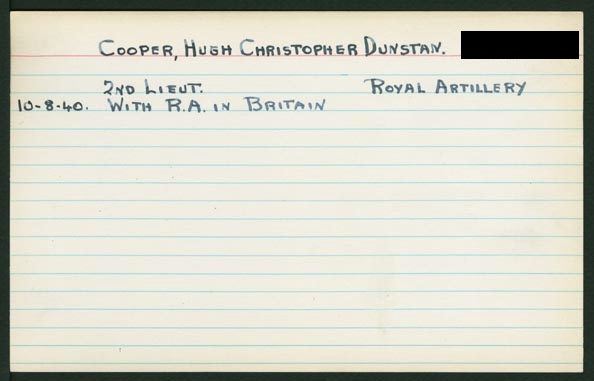 COOPER, HUGH CHRISTOPHER DUNSTAN.
2ND LIEUT. ROYAL ARTILLERY
10-8-40. WITH R.A. IN BRITAIN